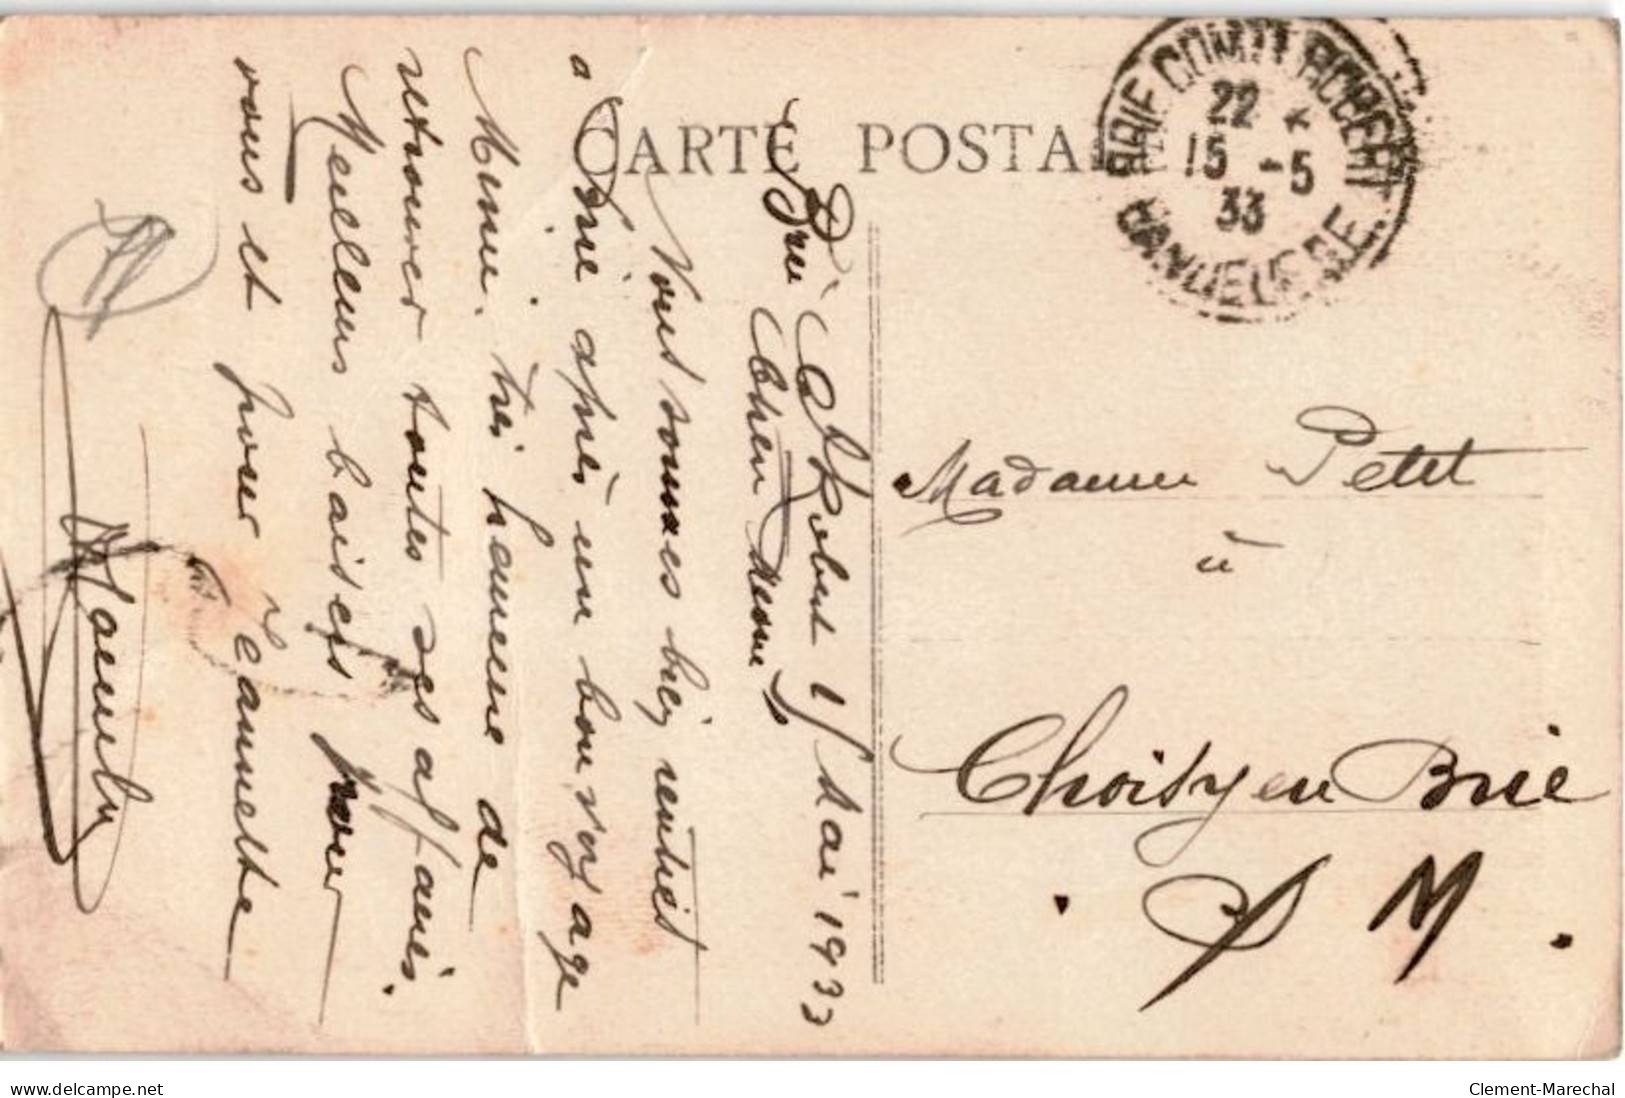 CARTE POSTALE
BRIE COMTE ROBERT
22 *
15 -5
33
SEINE ET
Brie C Robert 15 Mai 1933
Chère Madame
Nous sommes bien rentrés
à Brie après un bon voyage
Mimi très heureuse de
retrouver toutes ses affaires.
Meilleurs baisers pour
vous et pour Jeannette
Madame Petit
à
Choisy en Brie
S M
delcampe.net
Clement-Marechal